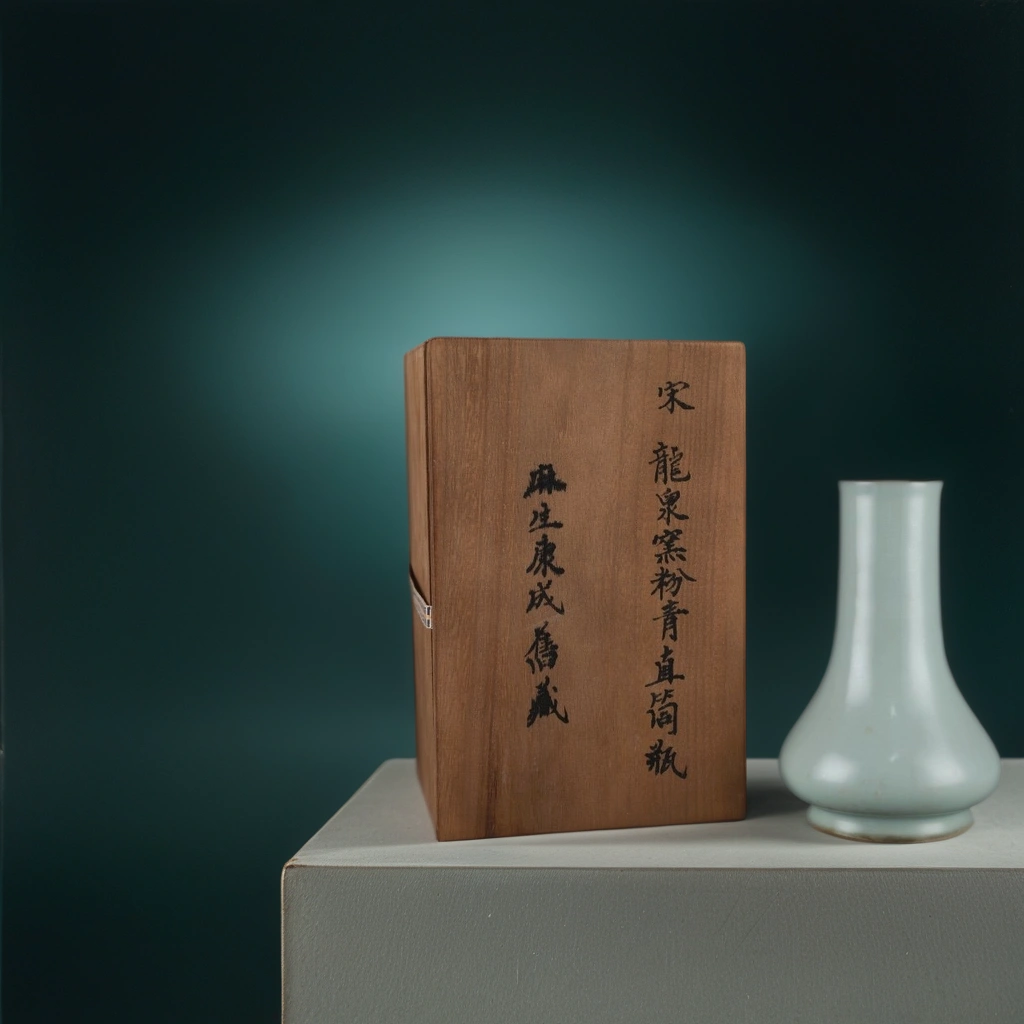 宋 龍泉窯粉青直筒瓶
麻生康成舊藏